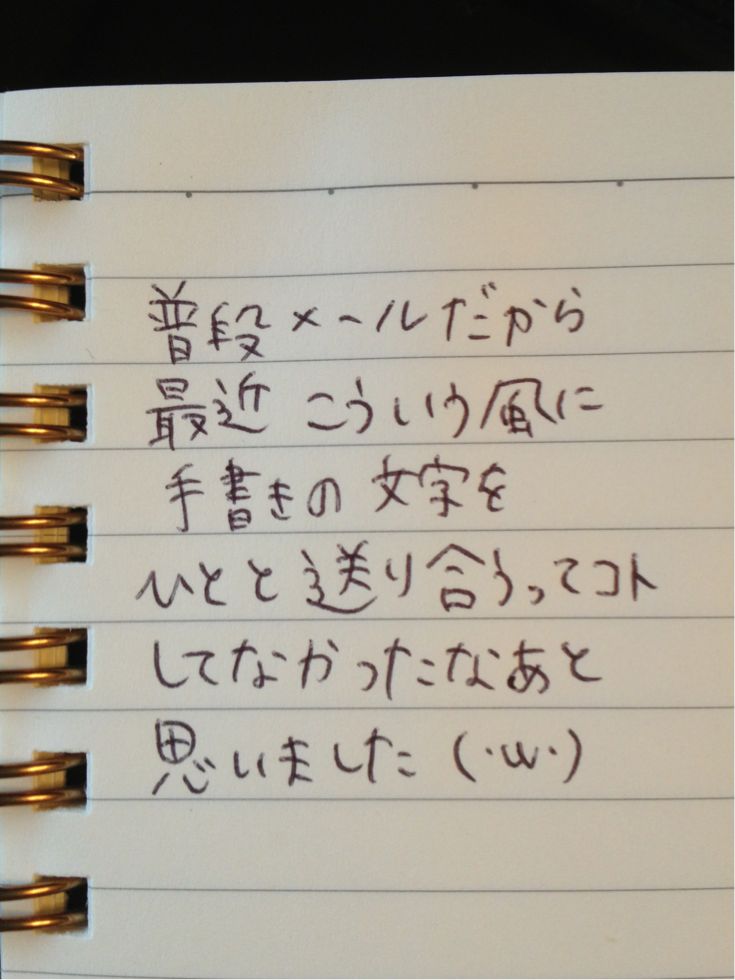 普段メールだから
最近 こういう風に
手書きの文字を
ひとと送り合うってコト
してなかったなあと
思いました (・ω・)